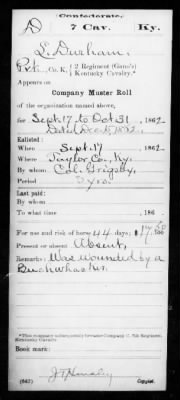 Confederate.
D 7 Cav. Ky.
L. Durham.
Pvt., Co. K, { 2 Regiment (Gano's) Kentucky Cavalry.*
Appears on
Company Muster Roll
of the organization named above,
for Sept. 17 to Oct 31, 1862.
Dated Dec 15, 1862.
Enlisted:
When Sept. 17, 1862.
Where Taylor Co., Ky.
By whom Col. Grigsby,
Period 3 yrs.
Last paid:
By whom
To what time , 186 .
For use and risk of horse 44 days, $17. 50/100
Present or absent Absent,
Remarks: Was wounded by a
Bushwhacker.
*This company subsequently became Company 7th Regiment
Kentucky Cavalry.
Book mark:
(642) Copyist.